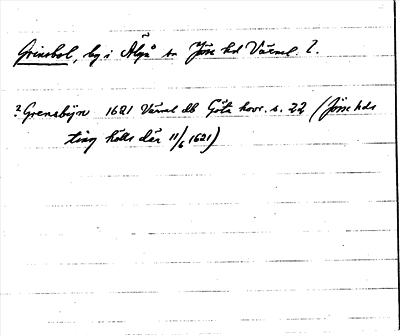 Grinsbol, by i Älgå sn Jösse hd Värml. L.
? Grensbÿn 1621 Värml db Göta hovr. s. 22 (Jösse hds
ting hölls där 11/6 1621)